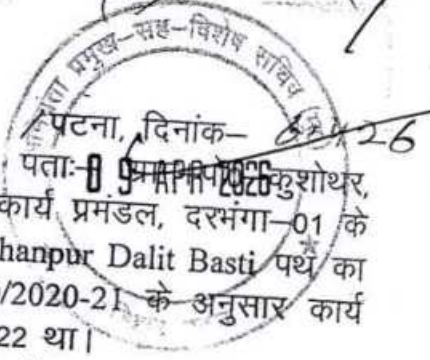 अभियंता प्रमुख-सह-विशेष सचिव
पटना, दिनांक–
पताः– कुशोथर,
09 APR 2026
कार्य प्रमंडल, दरभंगा–01 के
hanpur Dalit Basti पथ का
/2020-21 के अनुसार कार्य
22 था।